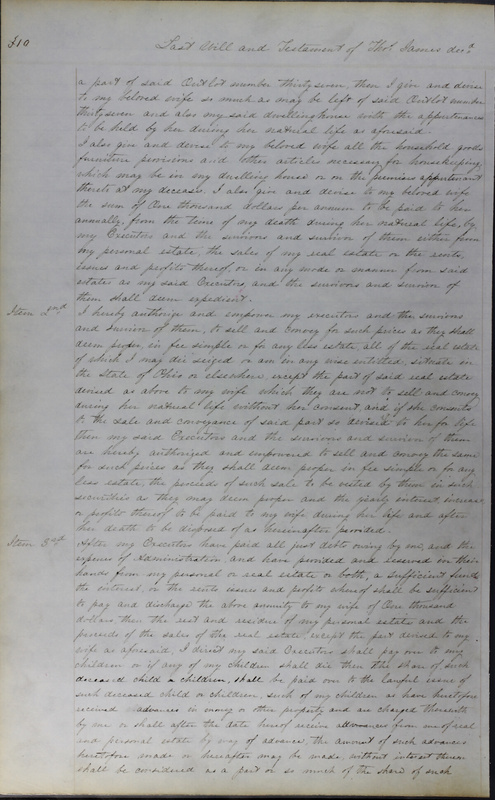 310
Last Will and Testament of Thos. James decd.
a part of said Outlot number thirtyseven, then I give and devise
to my beloved wife so much as may be left of said Outlot number
thirtyseven and also my said dwellinghouse with the appurtenances
to be held by her during her natural life as aforesaid.
I also give and devise to my beloved wife all the household goods
furniture provisions and other articles necessary for housekeeping,
which may be in my dwelling house or on the premises appurtenant
thereto at my decease. I also give and devise to my beloved wife
the sum of One thousand dollars per annum to be paid to her
annually, from the time of my death during her natural life, by
my Executors and the survivors and survivor of them either from
my personal estate, the sales of my real estate or the rents,
issues and profits thereof, or in any mode or manner from said
estates as my said Executors, and the survivors and survivor of
them shall deem expedient.
Item 2nd
I hereby authorize and empower my executors and the survivors
and survivor of them, to sell and convey for such prices as they shall
deem proper, in fee simple or for any less estate, all of the real estate
of which I may die seized or am in any wise entitled, situate in
the State of Ohio or elsewhere except the part of said real estate
devised as above to my wife which they are not to sell and convey
during her natural life without her consent, and if she consents
to the sale and conveyance of said part so devised to her for life
then my said Executors and the survivors and survivor of them
are hereby authorized and empowered to sell and convey the same
for such prices as they shall deem proper in fee simple or for any
less estate, the proceeds of such sale to be vested by them in such
securities as they may deem proper and the yearly interest increase
or profits thereof to be paid to my wife during her life and after
her death to be disposed of as hereinafter provided.
Item 3rd
After my Executors have paid all just debts owing by me, and the
expenses of Administration and have provided and reserved in their
hands from my personal or real estate or both, a sufficient fund
the interest, or the rents issues and profits whereof shall be sufficient
to pay and discharge the above annuity to my wife of One thousand
dollars, then the rest and residue of my personal estate and the
proceeds of the sales of the real estate, except the part devised to my
wife as aforesaid, I direct my said Executors shall pay over to my
children or if any of my children shall die then the share of such
deceased child or children, shall be paid over to the lawful issue of
such deceased child or children, such of my children as have heretofore
received advances in money or other property and are charged therewith
by me or shall after the date hereof receive advances from me of real
and personal estate by way of advance, the amount of such advances
heretofore made or hereafter may be made, without interest thereon
shall be considered as a part or so much of the share of such